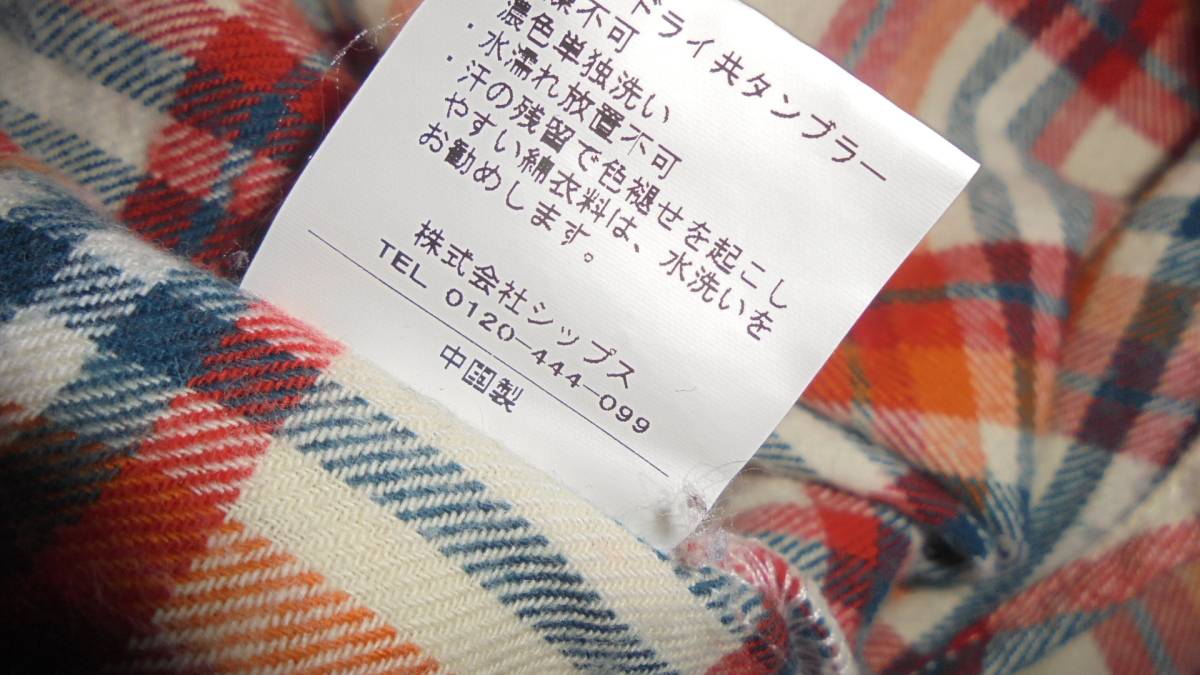 ドライ共タンブラー
燥不可
濃色単独洗い
・水濡れ放置不可
・汗の残留で色褪せを起こし
やすい綿衣料は、水洗いを
お勧めします。
株式会社シップス
TEL 0120-444-099
中国製